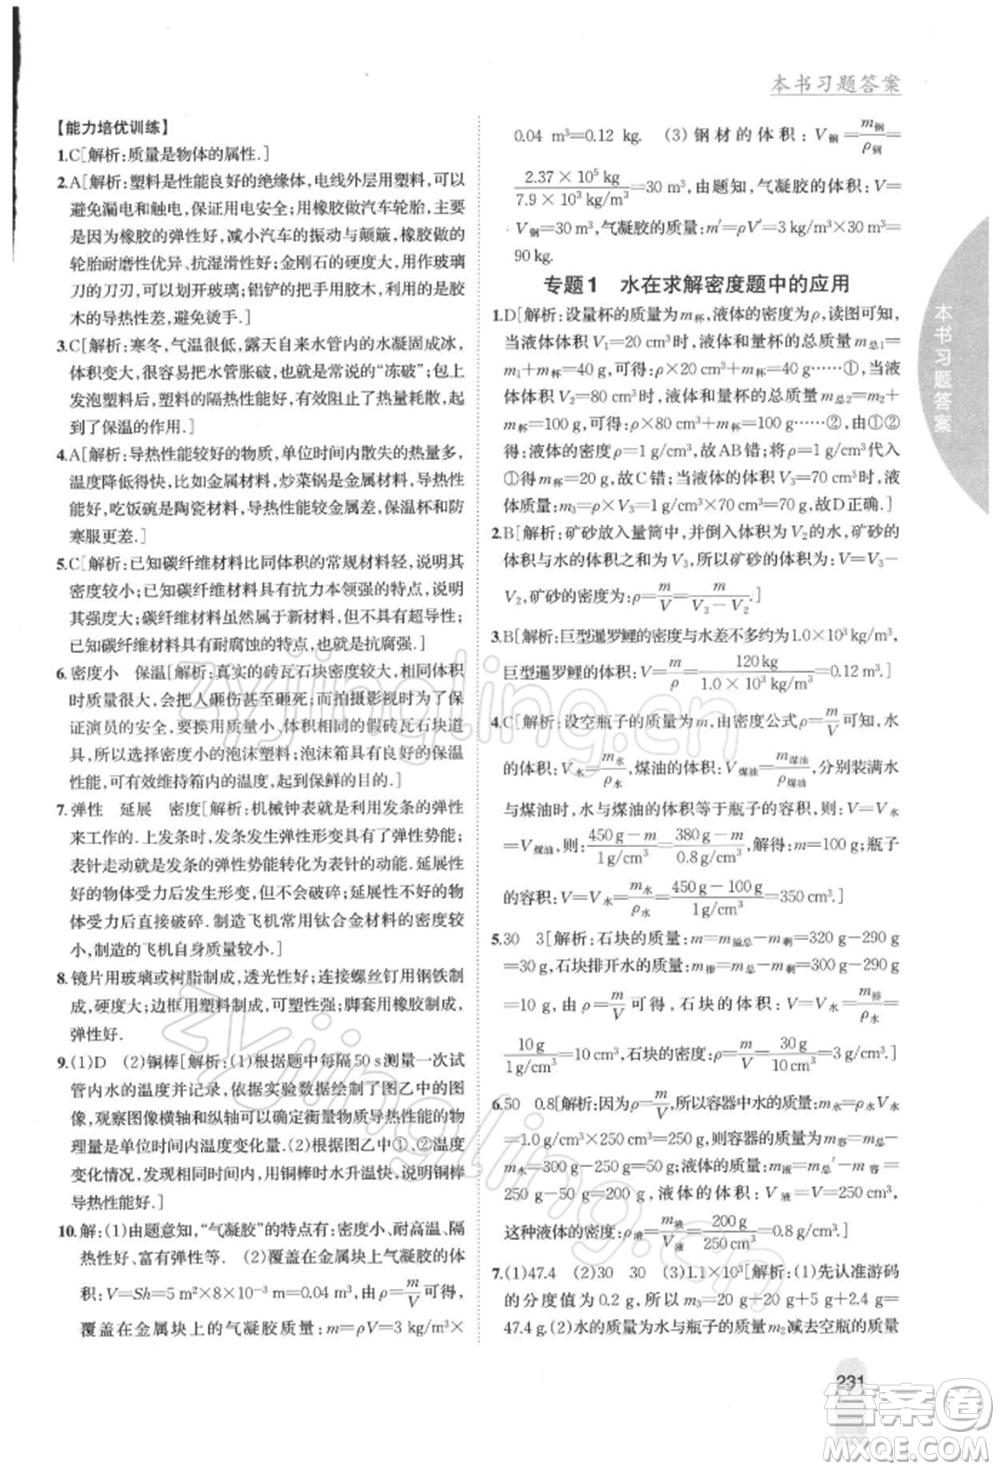 本书习题答案
【能力培优训练】
1.C[解析:质量是物体的属性.]
2.A[解析:塑料是性能良好的绝缘体,电线外层用塑料,可以
避免漏电和触电,保证用电安全;用橡胶做汽车轮胎,主要
是因为橡胶的弹性好,减小汽车的振动与颠簸,橡胶轮
胎耐磨性优异、抗湿滑性好;金刚石的硬度大,做玻璃
刀的刀刃,可以裁划玻璃;铝铲的把手用胶木,是因为胶
木的导热性差,避免烫手.]
3.C[解析:寒冬,气温很低,露天自来水中的水凝固成冰,
体积变大,把自来水管胀破,也就是“冻破”;包上
发泡塑料后,塑料的隔热性能好,有效阻止了热量耗散,
起到了保温的作用.]
4.A[解析:导热性能较好的物质,单位时间内散失的热量多,
温度降低得快,比如金属材料,炒菜锅是金属材料,导热性
能好,吃饭碗是陶瓷材料,导热性能较金属差,保温和防
寒服更差.]
5.C[解析:已知碳纤维材料比同体积的常规材料轻,说明其
密度较小;根据具有抗力本领强的特点,可知抗力强,说
明其强度大;碳纤维材料虽然属于新材料,但质量不变;
已知碳纤维材料有耐腐蚀的特点,也就是抗腐强.]
6.密度小　保温[解析:真实的砖瓦石块密度较大,相同体积
时质量很大,会把人砸伤甚至砸死;而拍摄影视时为了保
证演员的安全,要换用质量小、体积相同的假砖瓦石块道
具,所以选择密度小的泡沫塑料;泡沫箱具有良好的保温
性能,可有效地维持箱内的温度,起到保鲜的目的.]
7.弹性　延展　密度[解析:机械钟表就是利用发条的弹性
来工作的.上发条时,发条发生弹性形变具有弹性势能;
表针走动就是发条的弹性势能转化为表针的动能.延展
性好的物体受力后发生弯曲,不会破碎;延展性不好的物
体受力后直接破碎.制造飞机常用钛合金材料的密度较
小,制造的飞机自身质量较小.]
8.镜片用玻璃或树脂制成,透光性好;连接螺丝钉用钢铁制
成,硬度大;边框用塑料制成,密度小;脚套用橡胶制成,
弹性好.
9.(1)D　(2)铜棒[解析:(1)根据题中每隔50 s测量一次试
管内水的温度并记录,依据实验数据绘制了图乙中的图
像,观察图像横轴和纵轴可以确定衡量物质导热性能的物
理量是单位时间内温度变化量.(2)根据图乙中①、②温度
变化相同时,所用时间不同,用铜棒时水升温快,说明铜棒
导热性能好.]
10.解:(1)由题意知,“气凝胶”的特点有:密度小,耐高温,隔
热性好,富有弹性等.　(2)覆盖在金属块上气凝胶的体
积:V=Sh=5 m²×8×10⁻³ m=0.04 m³,由ρ=m/V可得,
覆盖在金属块上的气凝胶质量:m=ρV=3 kg/m³×
0.04 m³=0.12 kg.　(3)钢材的体积:V钢=m钢/ρ钢=
2.37×10⁵ kg/7.9×10³ kg/m³=30 m³,由题知,气凝胶的体积:V=
V钢=30 m³,气凝胶的质量:m′=ρV′=3 kg/m³×30 m³=
90 kg.
专题1　水在求解密度题中的应用
1.D[解析:设量杯的质量为m杯,液体的密度为ρ,读图可知,
当液体体积V₁=20 cm³时,液体和量杯的总质量m总1=
m₁+m杯=40 g,可得:ρ×20 cm³+m杯=40 g……①,当液
体体积V₂=80 cm³时,液体和量杯的总质量m总2=m₂+
m杯=100 g,可得:ρ×80 cm³+m杯=100 g……②,由①②
得:液体的密度ρ=1 g/cm³,故AB错;将ρ代入①得m杯=
20 g,故C错;当液体的体积V₃=70 cm³时,液体的质量:
m₃=ρ×V₃=1 g/cm³×70 cm³=70 g,故D正确.]
2.B[解析:矿砂放入量筒中,并倒入体积为V₂的水,矿砂的
体积与水的总体积之和为V₃,所以矿砂的体积V=V₃−
V₂,矿砂的密度为:ρ=m/V=m/V₃−V₂.]
3.B[解析:巨型暹罗鲤的密度与水差不多约为1.0×10³ kg/m³,
巨型暹罗鲤的体积:V=m/ρ=120 kg/1.0×10³ kg/m³=0.12 m³.]
4.C[解析:设空瓶子的质量为m,由密度公式ρ=m/V可知,水
的体积:V水=m水/ρ水,煤油的体积:V煤油=m煤油/ρ煤油,分别装满水
与煤油时,水与煤油的体积等于瓶子的容积,则:V=V水
=V煤油,则:450 g−m/1 g/cm³=380 g−m/0.8 g/cm³,解得:m=100 g;瓶子
的容积:V=V水=m水/ρ水=450 g−100 g/1 g/cm³=350 cm³.]
5.30　3[解析:石块的质量:m=m溢总−m剩=320 g−290 g
=30 g,石块排开水的质量:m排=m总−m剩=300 g−290 g
=10 g,由ρ=m/V可得,石块的体积:V=V排=m排/ρ水=
10 g/1 g/cm³=10 cm³,石块的密度:ρ=m/V=30 g/10 cm³=3 g/cm³.]
6.50　0.8[解析:由ρ=m/V,所以容器中水的质量:m水=ρ水V水
=1.0 g/cm³×250 cm³=250 g,则容器的质量m容=m总−m水
=300 g−250 g=50 g.液体的质量:m液=m总′−m容=
250 g−50 g=200 g,液体的体积:V液=V水=250 cm³,
这种液体的密度:ρ液=m液/V液=200 g/250 cm³=0.8 g/cm³.]
7.(1)47.4　(2)30　30　(3)1.1×10³[解析:(1)先认准游码
的分度值为0.2 g,所以m₃=20 g+20 g+5 g+2.4 g=
47.4 g.(2)水的质量为水与瓶子的质量m₂减去空瓶的质量
本书习题答案
231
zyjingling.cn
zyjingling.cn
答案圈
MXQE.COM